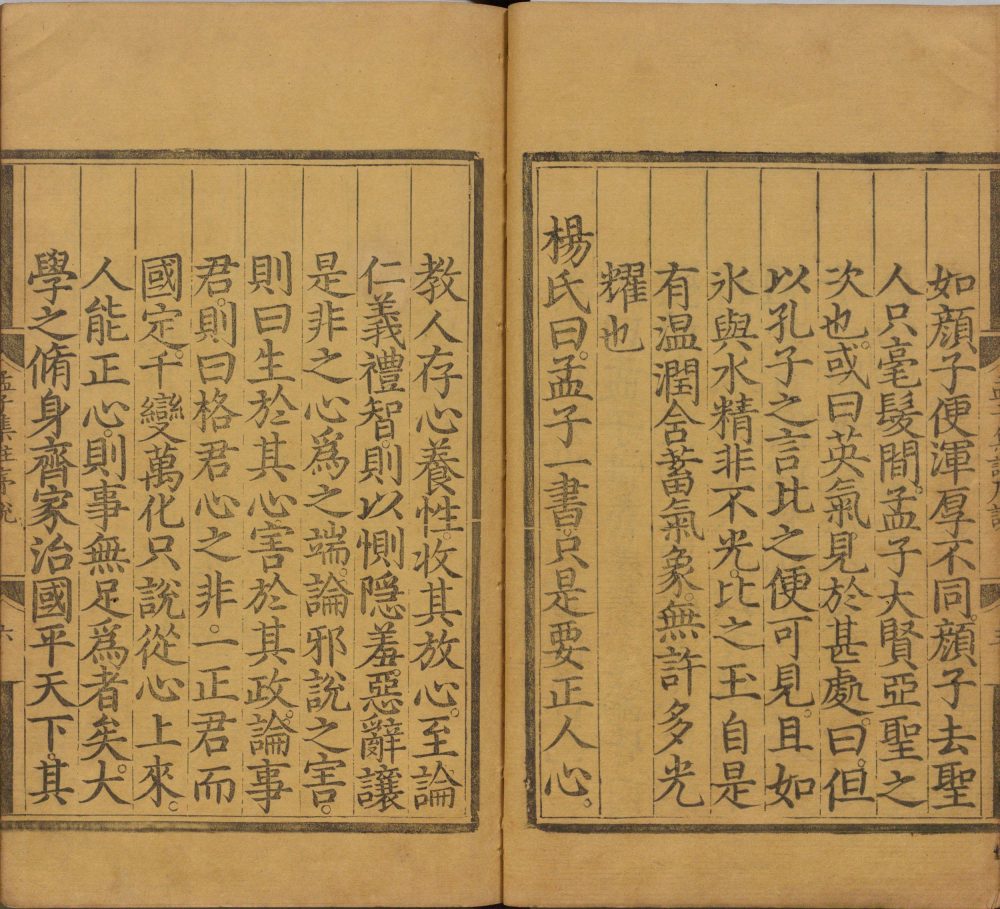 如顏子便渾厚不同。顏子去聖
人只毫髮閒。孟子大賢亞聖之
次也。或曰英氣見於甚處。曰但
以孔子之言比之便可見。且如
氷與水精非不光。比之玉自是
有温潤含蓄氣象。無許多光
耀也
楊氏曰。孟子一書。只是要正人心。
教人存心養性。收其放心。至論
仁義禮智。則以惻隠羞惡辭讓
是非之心爲之端。論邪說之害。
則曰生於其心害於其政。論事
君。則曰格君心之非。一正君而
國定。千變萬化只說從心上來。
人能正心。則事無足爲者矣。大
學之脩身齊家治國平天下。其
孟子集註序說
六